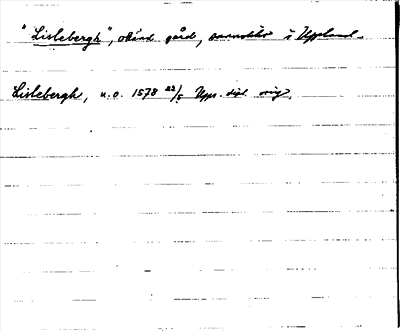 "Lislebergh", okänd gård, sannolikt i Uppland.
Lislebergh, u.o. 1578 22/5 Upps. dipl. orig.